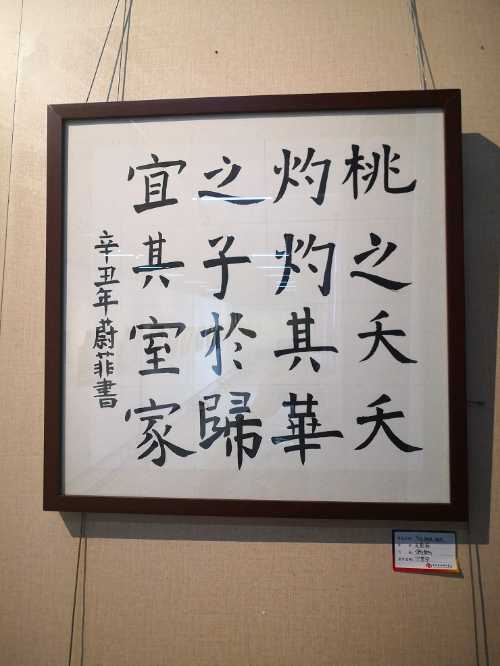 桃之夭夭
灼灼其華
之子於歸
宜其室家
辛丑年蔚菲書